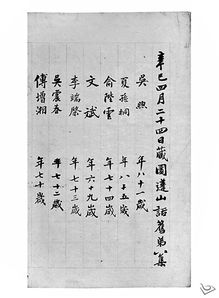 辛巳四月二十四日藏園蓬山話舊第八集
吳煦　年八十一歲
夏孫桐　年八十五歲
俞陛雲　年七十四歲
文斌　年六十九歲
李端棨　年七十三歲
吳震春　年七十二歲
傅增湘　年七十歲